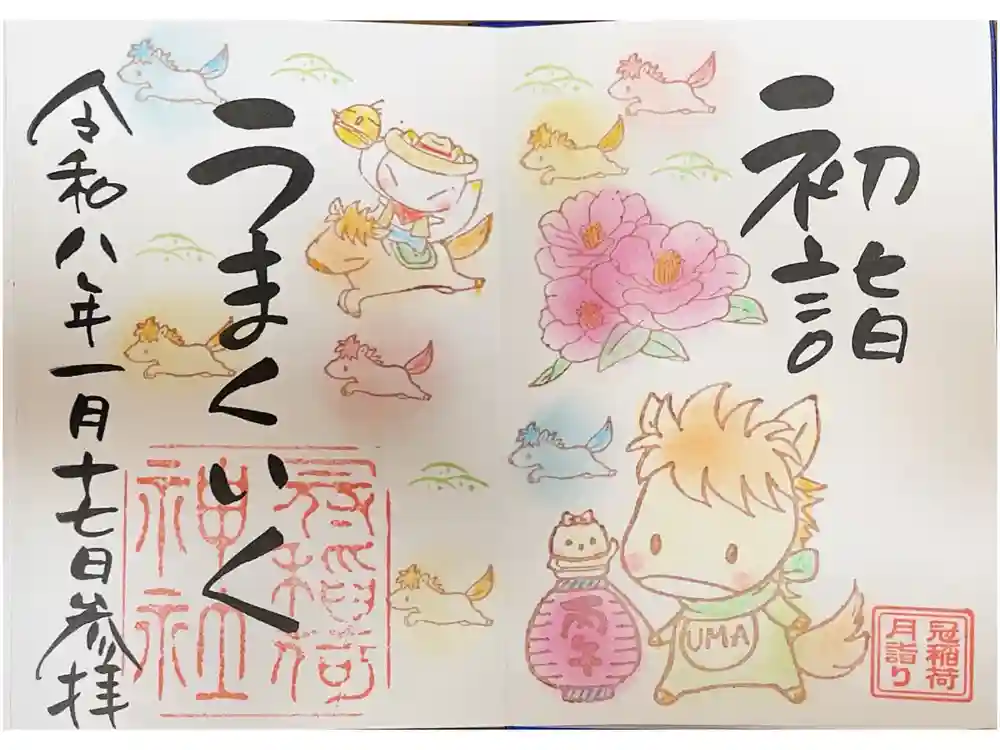 初詣
冠稲荷
月詣り
丙午
UMA
うまくいく
冠稲荷
神社
令和八年一月十七日参拝